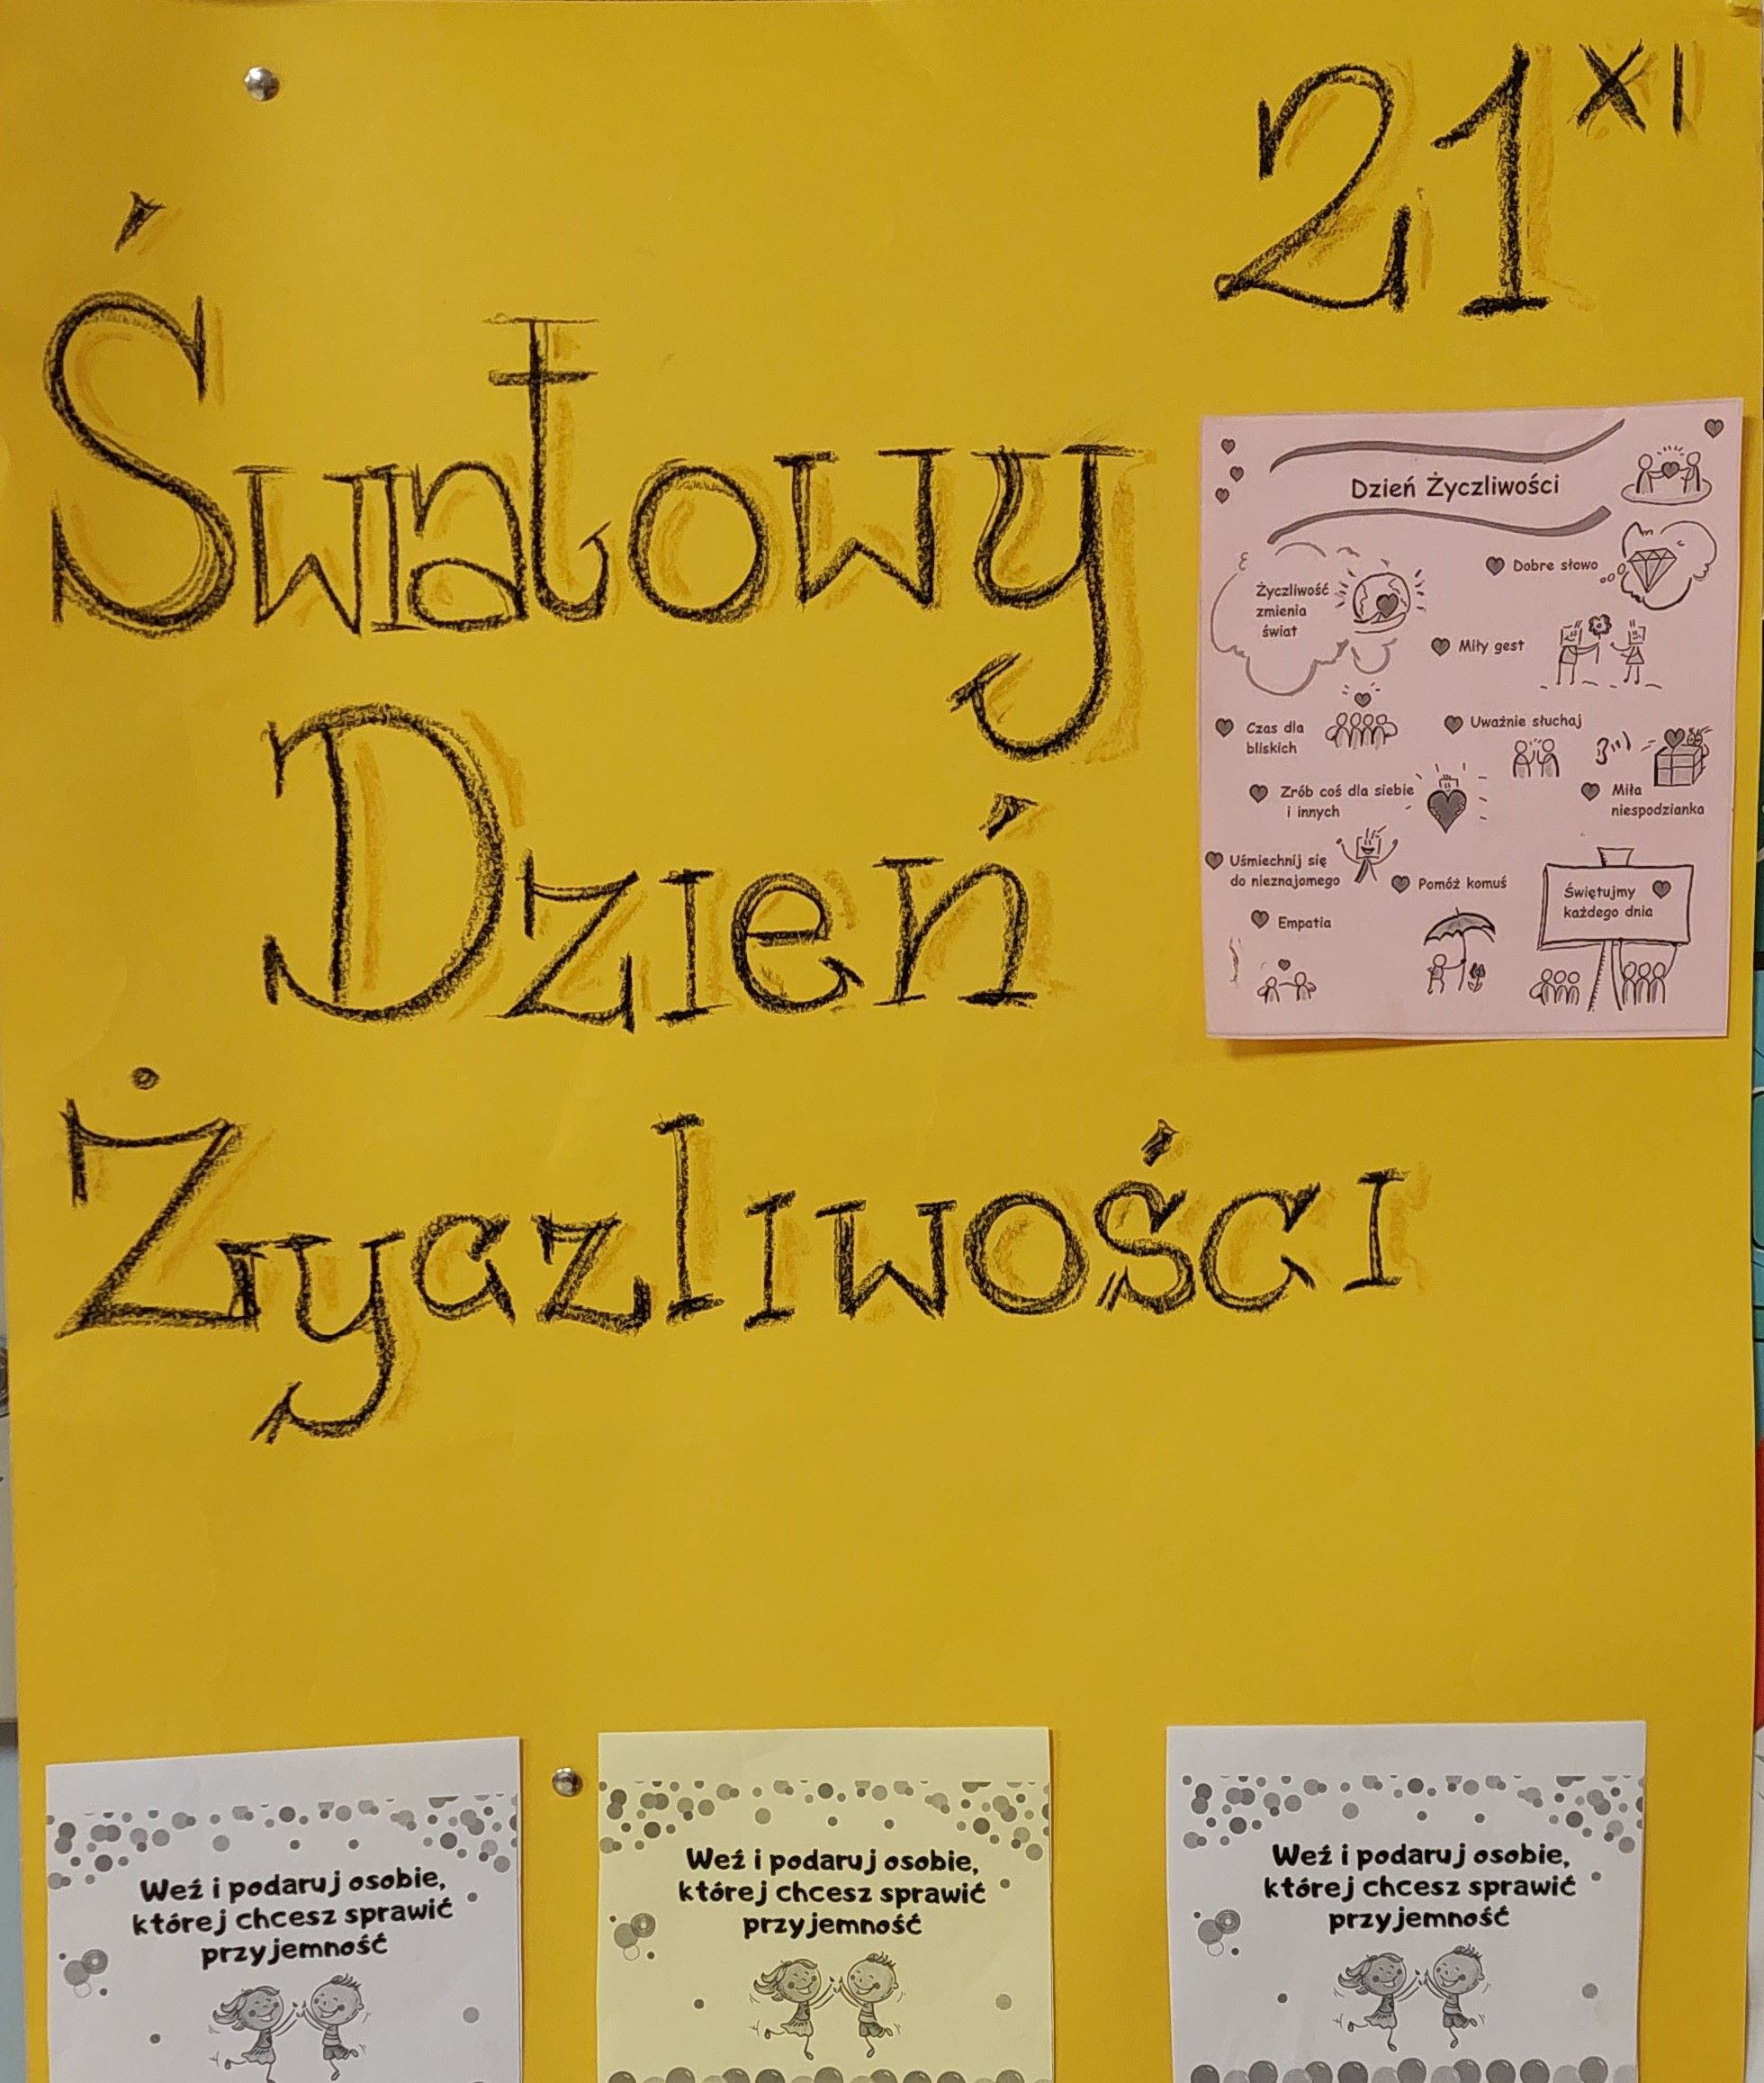 21 XI
Światowy
Dzień
Życzliwości
Dzień Życzliwości
Życzliwość
zmienia
świat
Dobre słowo
Miły gest
Czas dla
bliskich
Uważnie słuchaj
Zrób coś dla siebie
i innych
Miła
niespodzianka
Uśmiechnij się
do nieznajomego
Pomóż komuś
Empatia
Świętujmy
każdego dnia
Weź i podaruj osobie,
której chcesz sprawić
przyjemność
Weź i podaruj osobie,
której chcesz sprawić
przyjemność
Weź i podaruj osobie,
której chcesz sprawić
przyjemność